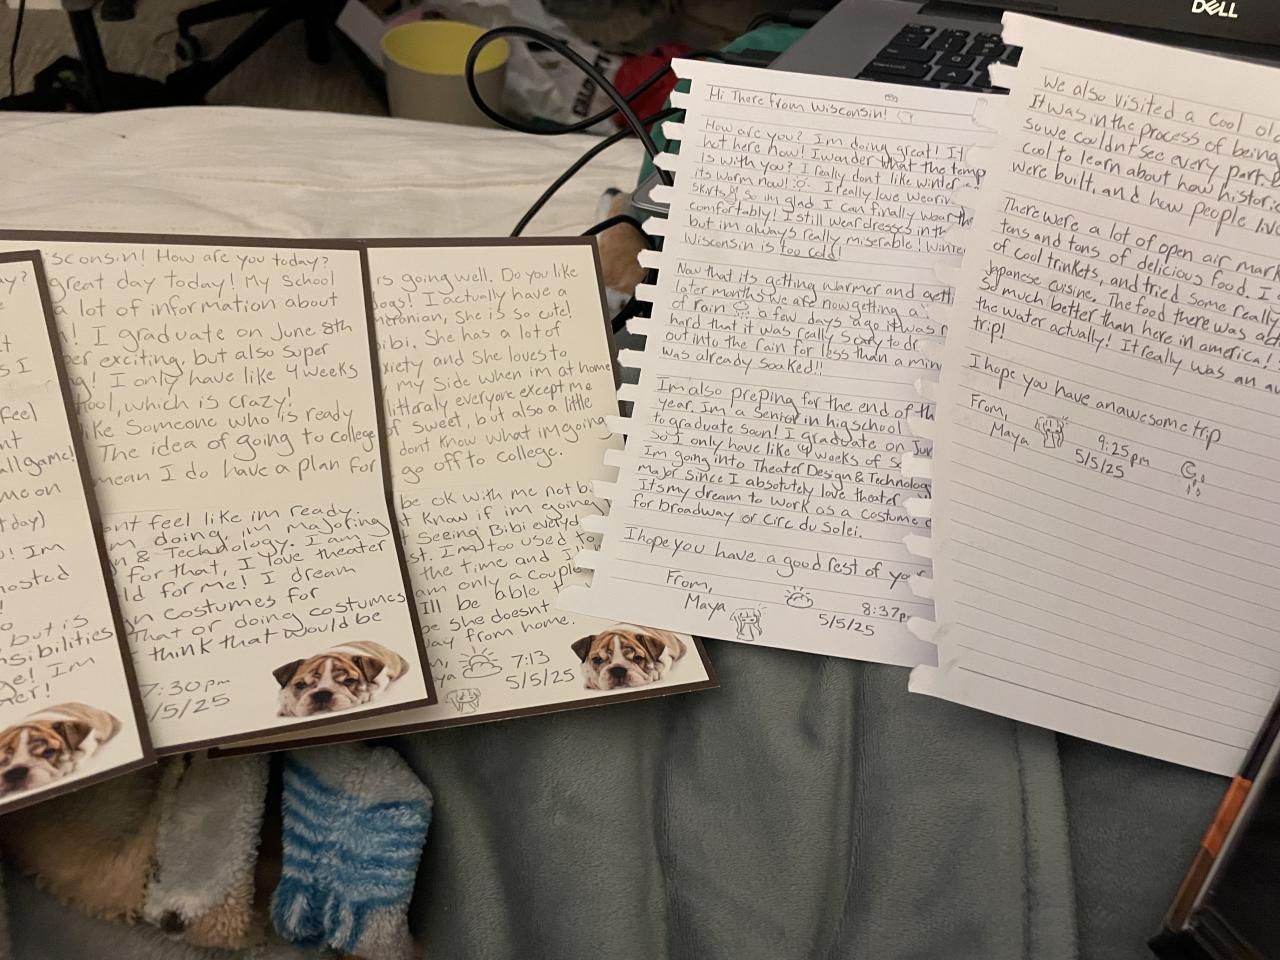 DELL
ay?
t
s I
feel
nt
all game!
me on
t day)
o! Im
hosted
!
o
but is
nsibilities
ge! Im
er!
isconsin! How are you today?
great day today! My school
a lot of information about
n! I graduate on June 8th
per exciting, but also super
ng! I only have like 4 weeks
hool, which is crazy!
ike someone who is ready
The idea of going to college
mean I do have a plan for
ont feel like im ready.
m doing, im majoring
n & Technology. I am
for that, I love theater
ld for me! I dream
n costumes for
That or doing costumes
think that would be
7:30pm
/5/25
rs going well. Do you like
dogs! I actually have a
meranian, she is so cute!
ibi. She has a lot of
xiety and she loves to
my side when im at home
litteraly everyone except me
f sweet, but also a little
dont know what im going
go off to college.
be ok with me not b
t know if im going
t seeing Bibi everyd
st. Im too used to
the time and I
am only a couple
Ill be able t
pe she doesnt
way from home.
m,
ya
7:13
5/5/25
Hi There from Wisconsin!
How are you? Im doing great! It
hot here now! I wonder what the temp
is with you? I really dont like winter
its warm now! I really love wearin
skirts so im glad I can finally wear the
comfortably! I still wear dresses in th
but im always really miserable! Winter
Wisconsin is too cold!
Now that its getting warmer and gett
later months we are now getting a
of rain a few days ago it was r
hard that it was really scary to dr
out into the rain for less than a min
was already soaked!!
Im also preping for the end of th
year. Im a senior in higschool
to graduate soon! I graduate on Jun
so I only have like 4 weeks of sc
Im going into Theater Design & Technology
major since I absolutely love theater
Its my dream to work as a costume d
for broadway or Circ du Solei.
I hope you have a good rest of you
From,
Maya
8:37p
5/5/25
We also visited a cool ol
It was in the process of being
so we couldnt see every part b
cool to learn about how histori
were built, and how people live
There were a lot of open air mark
tons and tons of delicious food. I
of cool trinkets, and tried some really
Japanese cuisine. The food there was act
So much better than here in america!
the water actually! It really was an aw
trip!
I hope you have an awesome trip
From,
Maya
9:25pm
5/5/25